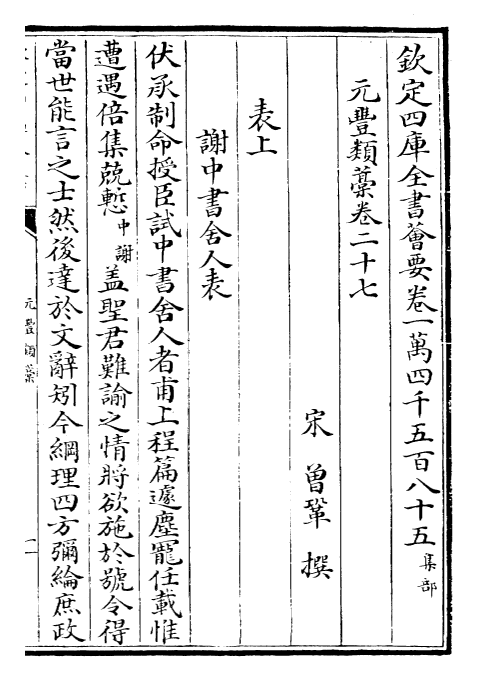 欽定四庫全書薈要卷一萬四千五百八十五 集部
元豐類藁卷二十七
宋 曾鞏 撰
表上
謝中書舍人表
伏承制命授臣試中書舍人者甫上程篇遽塵寵任載惟
遭遇倍集兢慙中謝盖聖君難諭之情將欲施於號令得
當世能言之士然後達於文辭矧今綱理四方彌綸庶政
元豐類藁